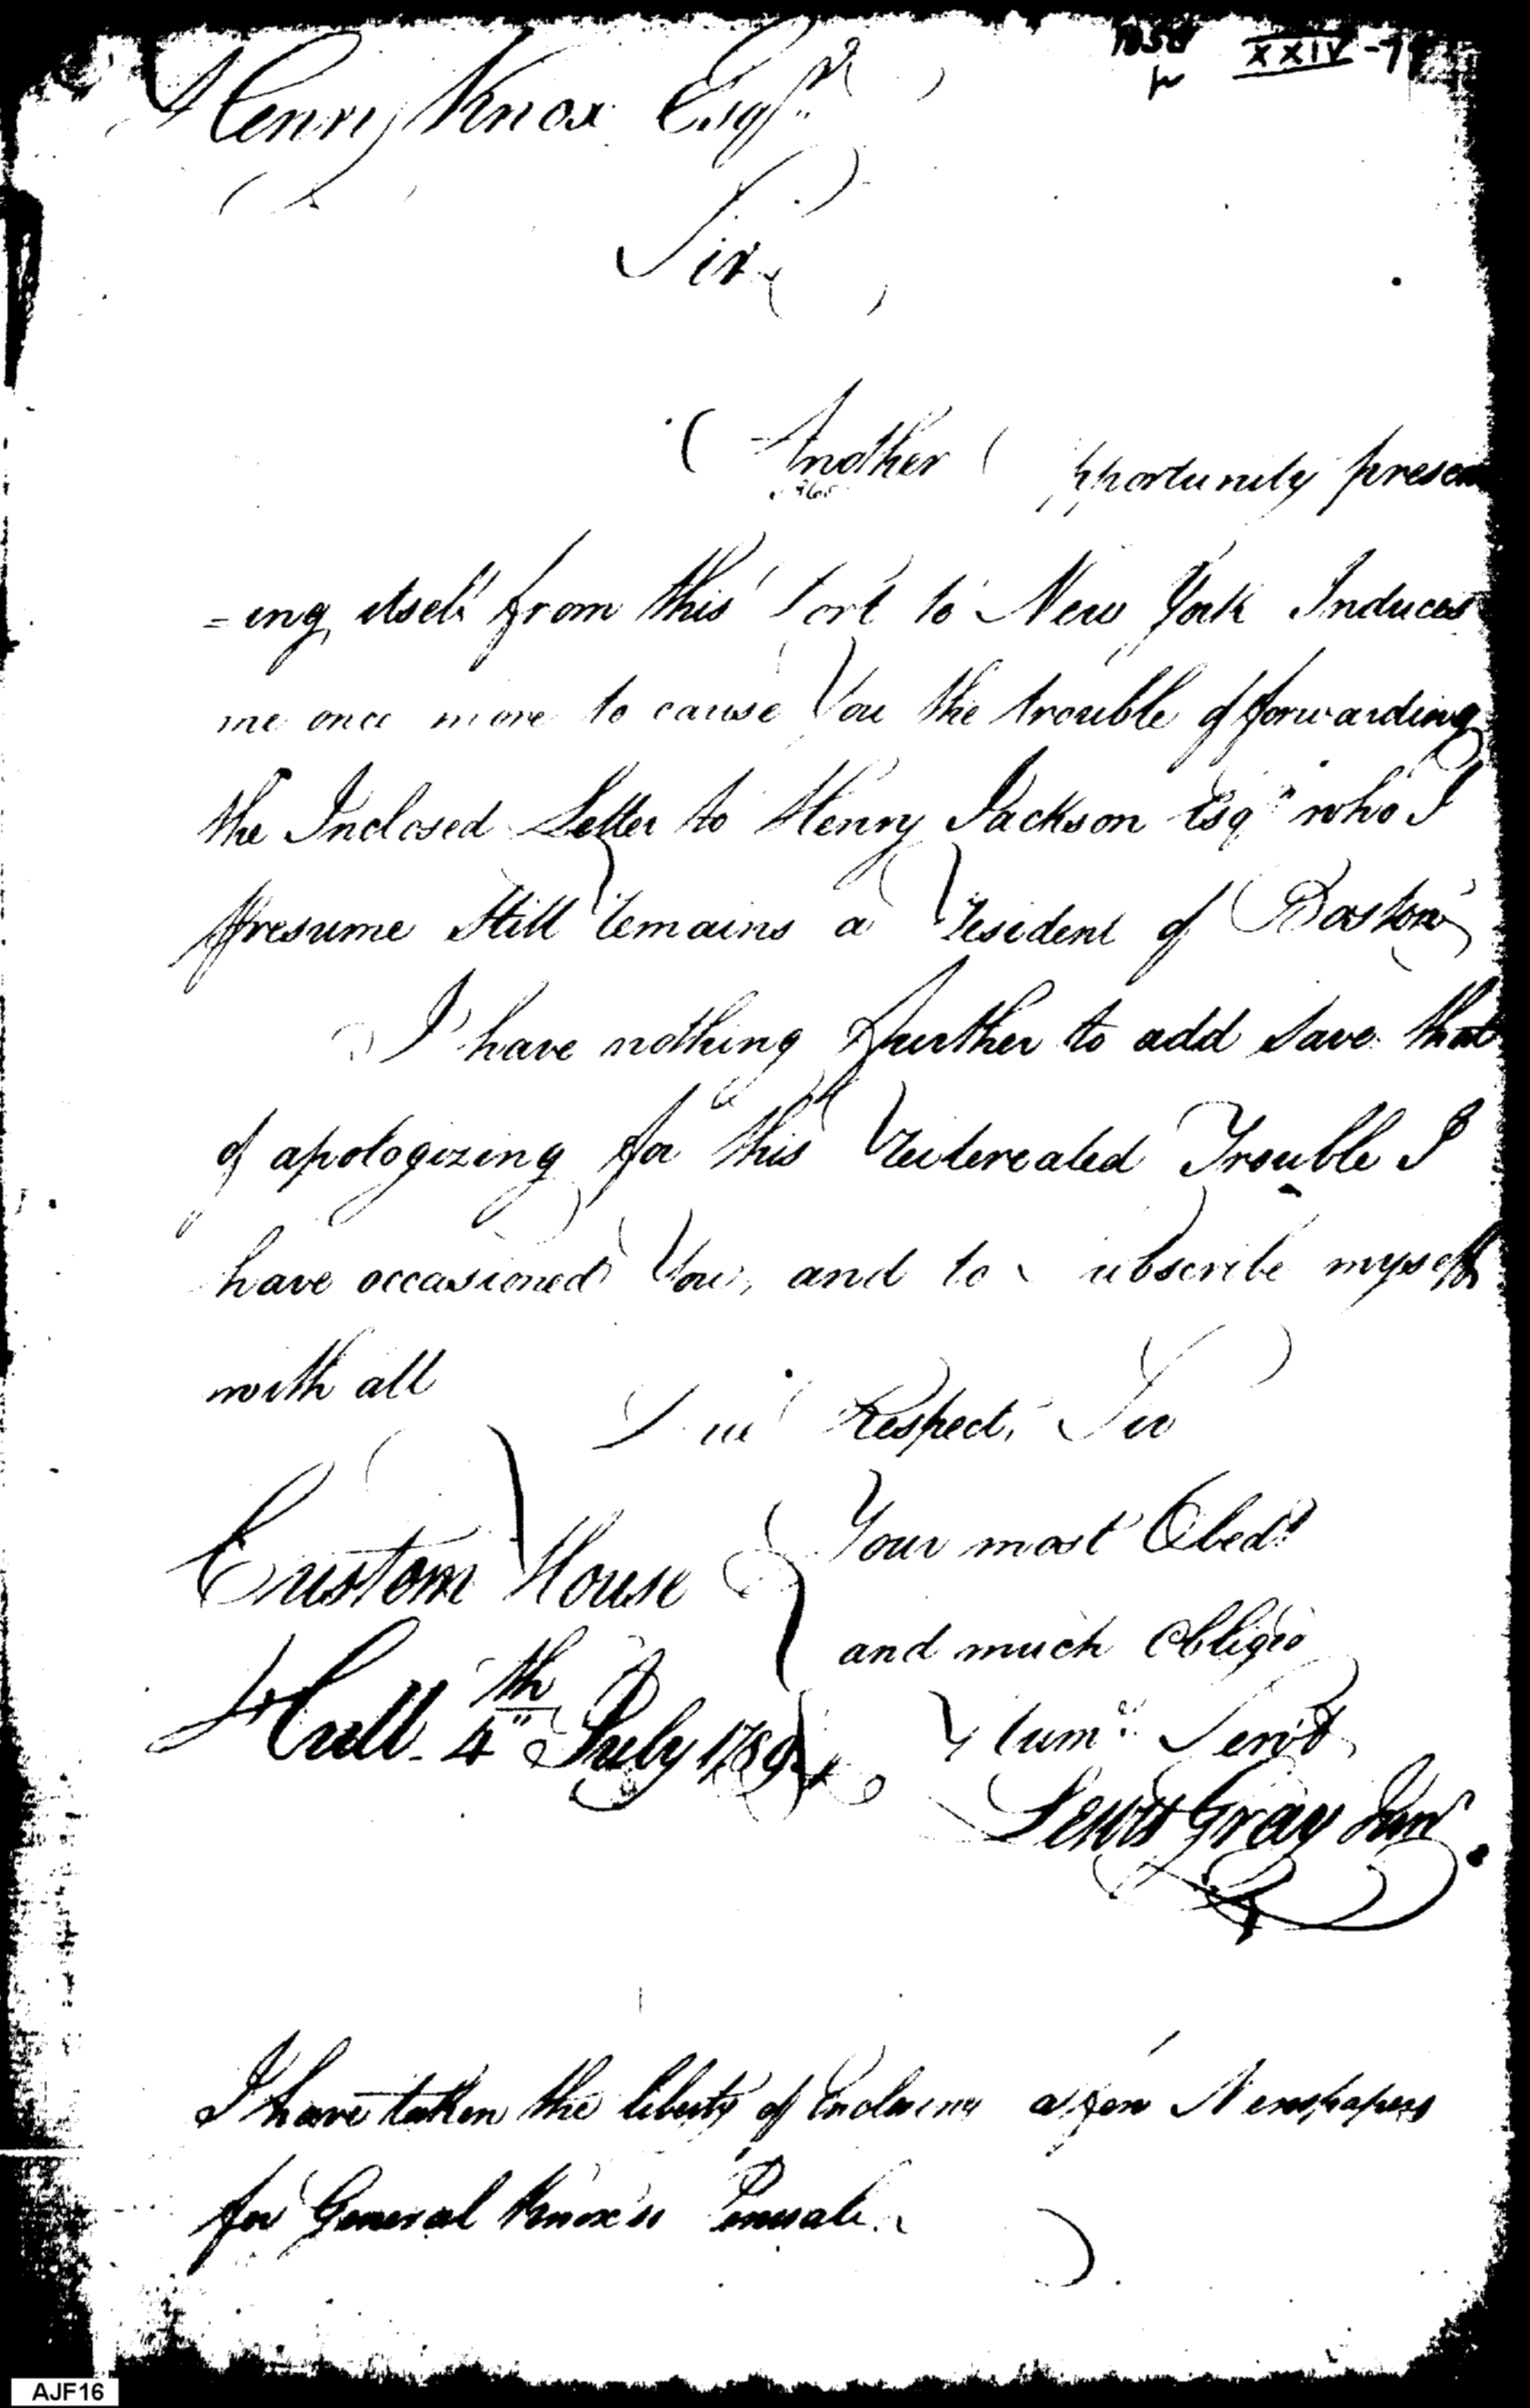 XXIV-79
Henry Knox Esqr.
Sir
Another Opportunity present
=ing itself from this Port to New York Induces
me once more to cause You the trouble of forwarding
the Inclosed Letter to Henry Jackson Esqr. who I
Presume Still Remains a Resident of Boston
I have nothing further to add save that
of apologizing for this Reitereated Trouble I
have occasioned You, and to Subscribe myself
with all
Due Respect, Sir
Your most Obedt.
Custom House
and much Obligd
Hull 4th July 1789
Humle. Servt.
Lewis Gray Junr.
I have taken the liberty of Inclosing a few Newspapers
for General Knox's Perusal.
AJF16